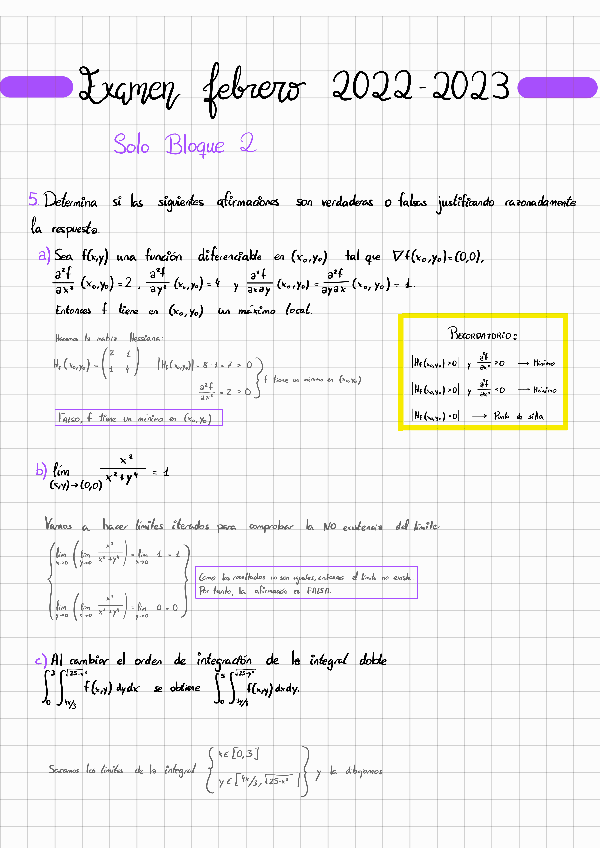 Examen febrero 2022-2023
Solo Bloque 2
5. Determina si las siguientes afirmaciones son verdaderas o falsas justificando razonadamente
la respuesta.
a) Sea f(x,y) una función diferenciable en (x₀,y₀) tal que ∇f(x₀,y₀)=(0,0),
∂²f/∂x² (x₀,y₀)=2 , ∂²f/∂y² (x₀,y₀)=4 y ∂²f/∂x∂y (x₀,y₀)= ∂²f/∂y∂x (x₀,y₀)=1.
Entonces f tiene en (x₀,y₀) un máximo local.
Hacemos la matriz Hessiana:
H_f(x₀,y₀)=(2 1 / 1 4) |H_f(x₀,y₀)|=8-1=7>0
∂²f/∂x² =2>0
f tiene un mínimo en (x₀,y₀)
FALSO, f tiene un mínimo en (x₀,y₀)
RECORDATORIO:
|H_f(x₀,y₀)>0| y ∂²f/∂x² >0 → Mínimo
|H_f(x₀,y₀)>0| y ∂²f/∂x² <0 → Máximo
|H_f(x₀,y₀)<0| → Punto de silla
b) lím (x,y)→(0,0) x²/(x²+y⁴) = 1
Vamos a hacer límites iterados para comprobar la NO existencia del límite
lím x→0 (lím y→0 x²/(x²+y⁴)) = lím x→0 1 = 1
lím y→0 (lím x→0 x²/(x²+y⁴)) = lím y→0 0 = 0
Como los resultados no son iguales, entonces el límite no existe
Por tanto, la afirmación es FALSA.
c) Al cambiar el orden de integración de la integral doble
∫₀³ ∫_{4x/3}^{√25-x²} f(x,y) dydx se obtiene ∫₀⁵ ∫_{3y/4}^{√25-y²} f(x,y) dxdy.
Sacamos los límites de la integral { x∈[0,3] y∈[4x/3, √25-x²] } y la dibujamos